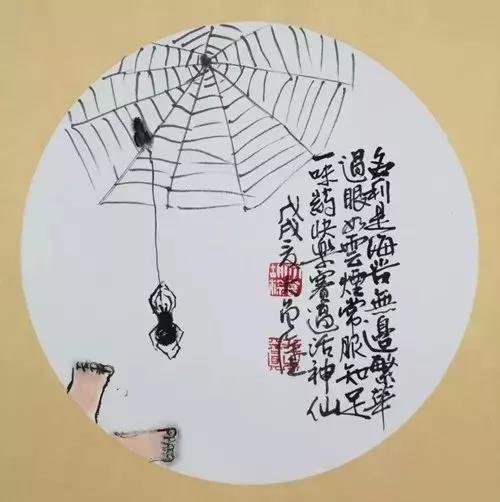 名利是海苦無邊繁華
過眼如雲煙常服知足
一味葯快樂賽過活神仙
戊戌